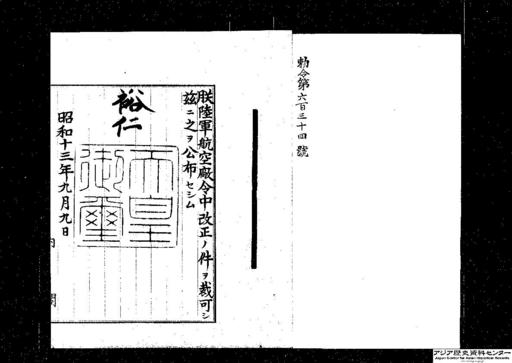 勅令第六百三十四號
朕陸軍航空廠令中改正ノ件ヲ裁可シ
茲ニ之ヲ公布セシム
裕仁
天皇
御璽
昭和十三年九月九日
内閣
アジア歴史資料センター
Japan Center for Asian Historical Records